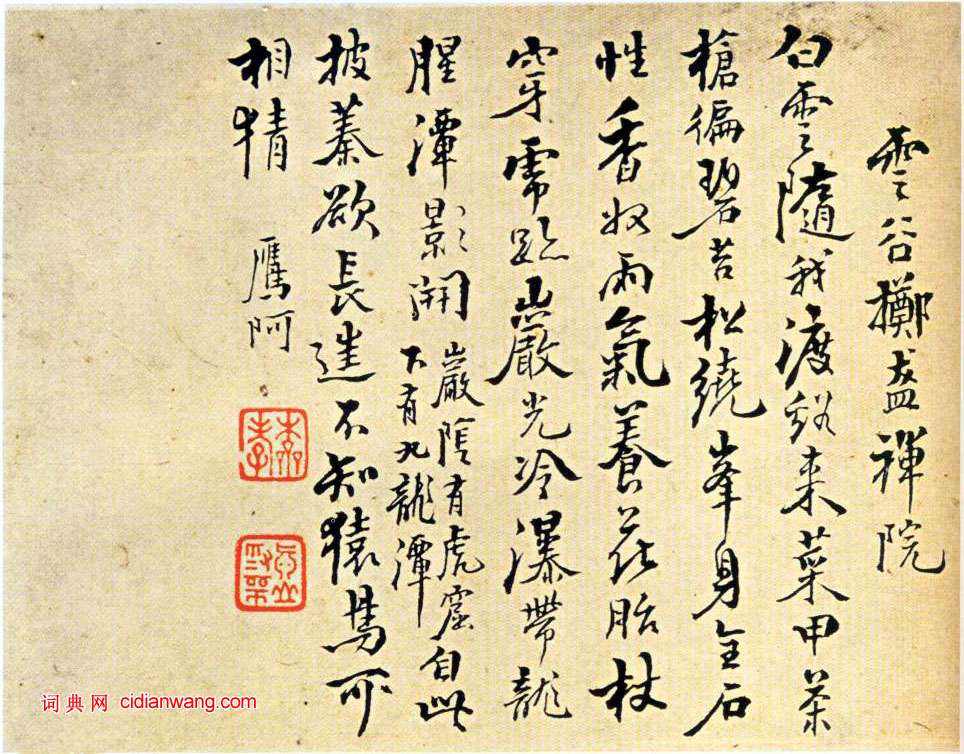 雲谷擲盋禪院
白雲隨我渡谿来菜甲茶
槍徧碧苔松繞峯身全石
性香奴雨氣養花胎杖
穿虎跡巖光冷瀑帶龍
腥潭影開
巖陰有虎窟
下有九龍潭
自此
披蓁欲長進不知猿鳥可
相猜
鷹阿
本孝
词典网 cidianwang.com